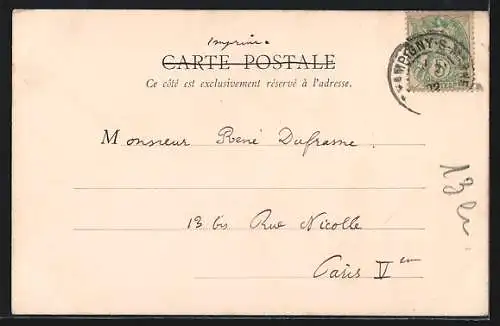 Imprimé
CARTE POSTALE
Ce côté est exclusivement réservé à l'adresse.
Monsieur René Dufrasne
13 bis Rue Nicolle
Paris Vem
02